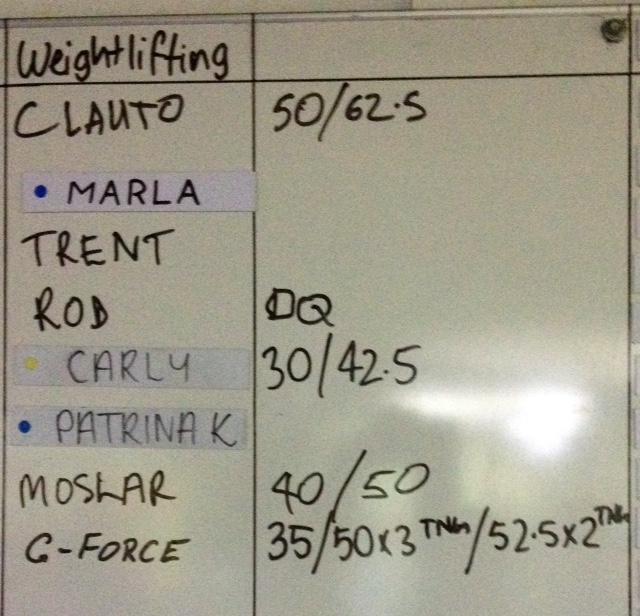 Weightlifting
CLAUTO 50/62.5
MARLA
TRENT
ROD DQ
CARLY 30/42.5
PATRINA K
MOSLAR 40/50
G-FORCE 35/50x3 TNG/52.5x2 TNG